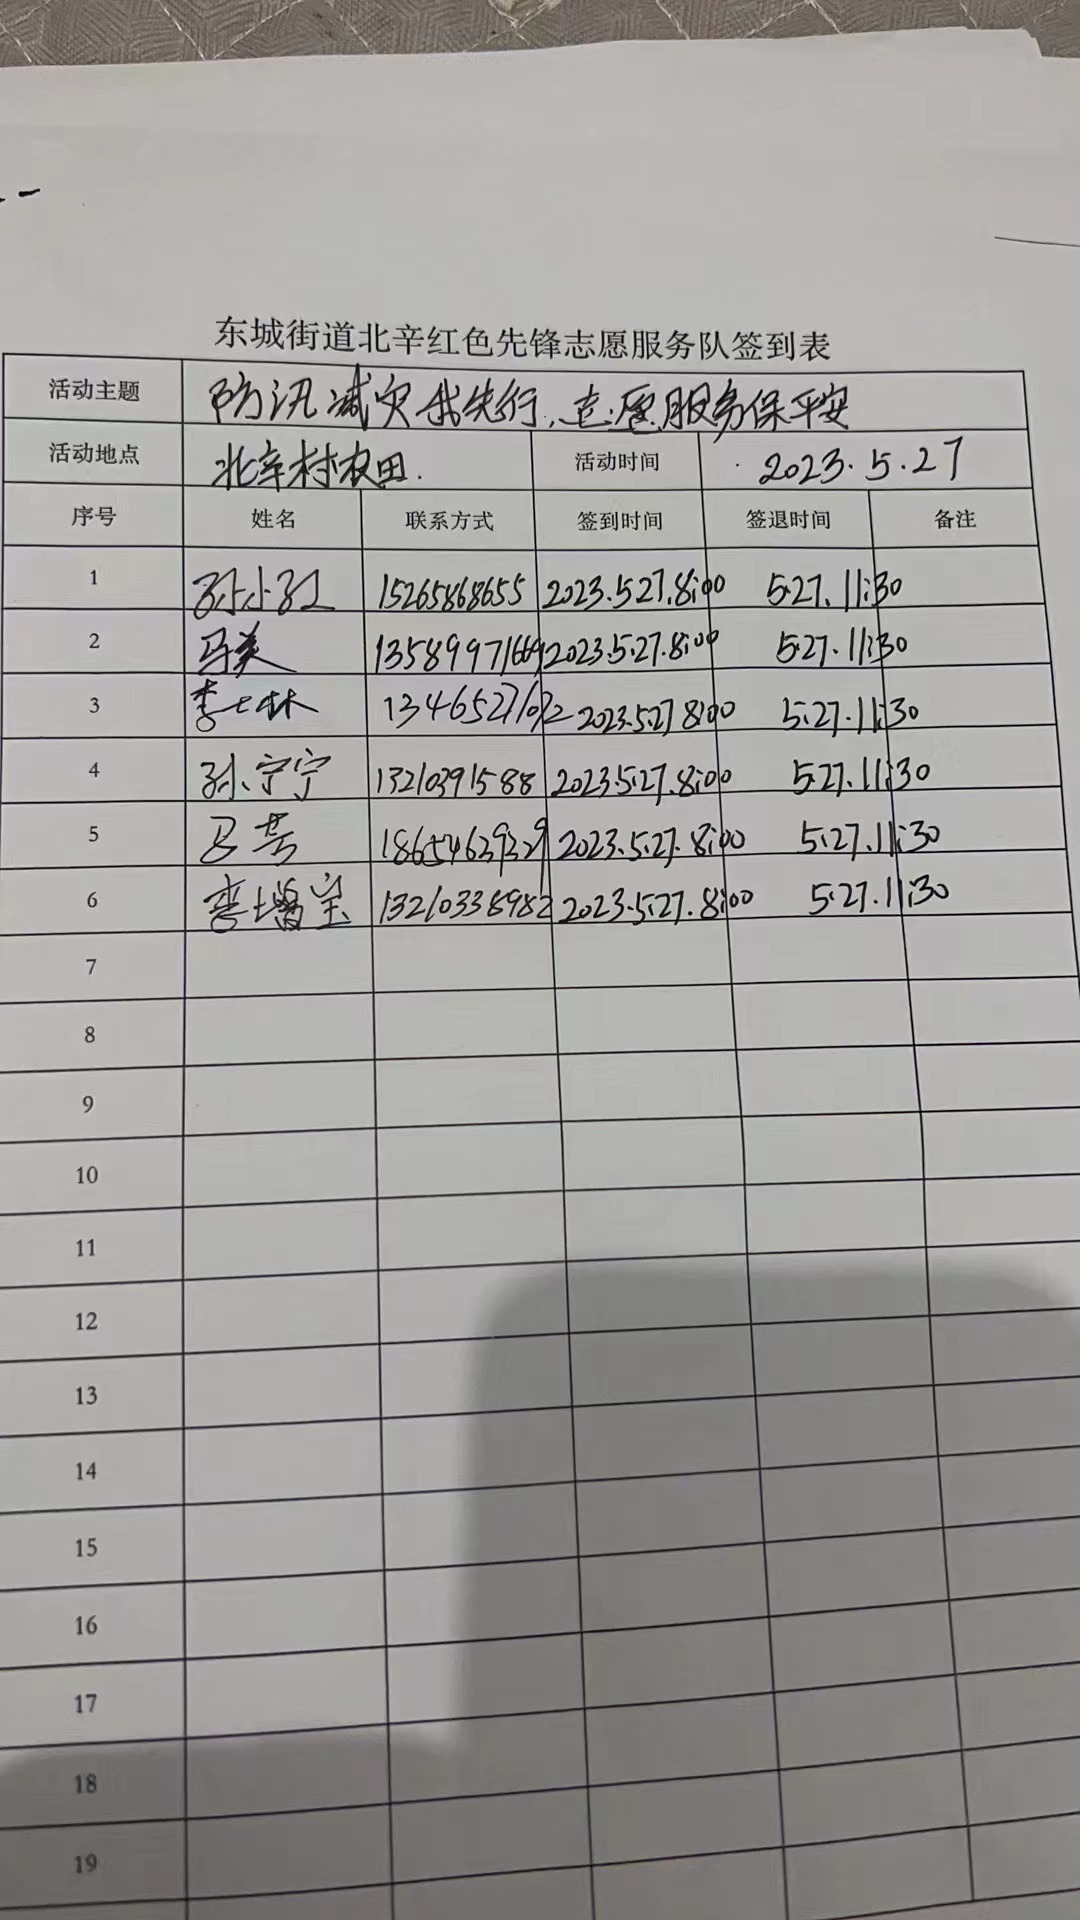 东城街道北辛红色先锋志愿服务队签到表
活动主题 防汛减灾我先行,志愿服务保平安
活动地点 北辛村农田. 活动时间 2023.5.27
序号 姓名 联系方式 签到时间 签退时间 备注
1 孙小红 15265868655 2023.5.27.8:00 5.27.11:30
2 马美 13589971669 2023.5.27.8:00 5.27.11:30
3 李七林 13465271012 2023.5.27 8:00 5.27.11:30
4 孙宁宁 13210391588 2023.5.27.8:00 5.27.11:30
5 吕芸 18654639329 2023.5.27.8:00 5.27.11:30
6 李增宝 13210338982 2023.5.27.8:00 5.27.11:30
7
8
9
10
11
12
13
14
15
16
17
18
19